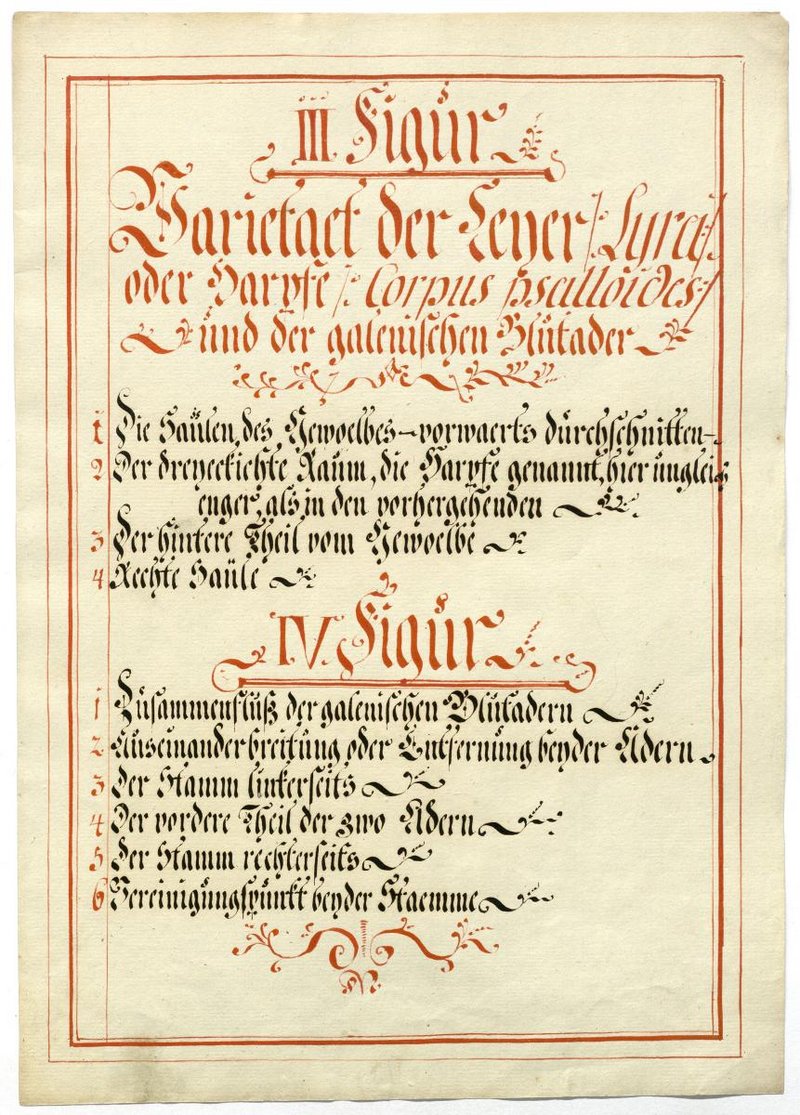 III. Figur
Varietaet der Leyer /: Lyra :/
oder Harpfe /: Corpus psalloides :/
und der galenischen Blutader
1 Die Säulen des Gewoelbes – vorwaerts durchschnitten –
2 Der dreyeckichte Raum, die Harpfe genannt, hier ungleich
enger, als in den vorhergehenden
3 Der hintere Theil vom Gewoelbe
4 Rechte Säule
IV. Figur
1 Zusammenfluß der galenischen Blutadern
2 Auseinanderbreitung oder Entfernung beyder Adern
3 Der Stamm linkerseits
4 Der vordere Theil der zwo Adern
5 Der Stamm rechterseits
6 Vereinigungspunkt beyder Staemme